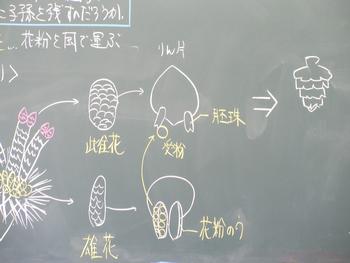 子孫を残すのだろうか。
花粉を風で運ぶ
りん片
胚珠
雌花
受粉
花粉のう
雄花